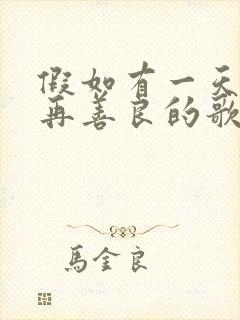 假如有一天
再善良的歌
馬金良